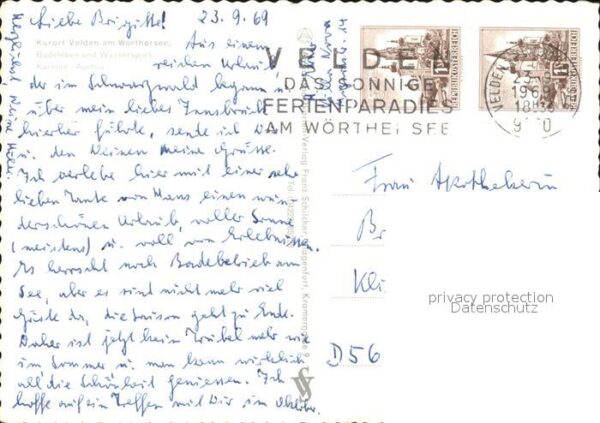 Liebe Brigitte! 23.9.69
Kurort Velden am Wörthersee
Badeleben und Wassersport
Kärnten - Austria
Aus einem
reichen Urlaub,
der im Schwarzwald begann u.
über mein liebes Innsbruck
hierher führte, sende ich Dir
u. den Deinen meine Grüsse.
Ich verlebe hier mit einer sehr
lieben Tante von Hans einen wun
derschönen Urlaub, voller Sonne
(meistens) u. voll von Erlebnissen.
Es herrscht noch Badebetrieb am
See, aber es sind nicht mehr viel
Gäste da, die Saison geht zu Ende.
Daher ist jetzt kein Trubel mehr wie
im Sommer u. man kann wirklich
all die Schönheit genießen. Ich
hoffe auf ein Treffen mit Dir im Oktober.
Herzlichst Deine
VELDEN
DAS SONNIGE
FERIENPARADIES
AM WÖRTHER SEE
VELDEN
1969
18
REPUBLIK ÖSTERREICH
REPUBLIK ÖSTERREICH
Verlag Franz Schilcher, Klagenfurt, Kramergasse 9
Frau Apothekerin
Br
Kli
D56
privacy protection
Datenschutz